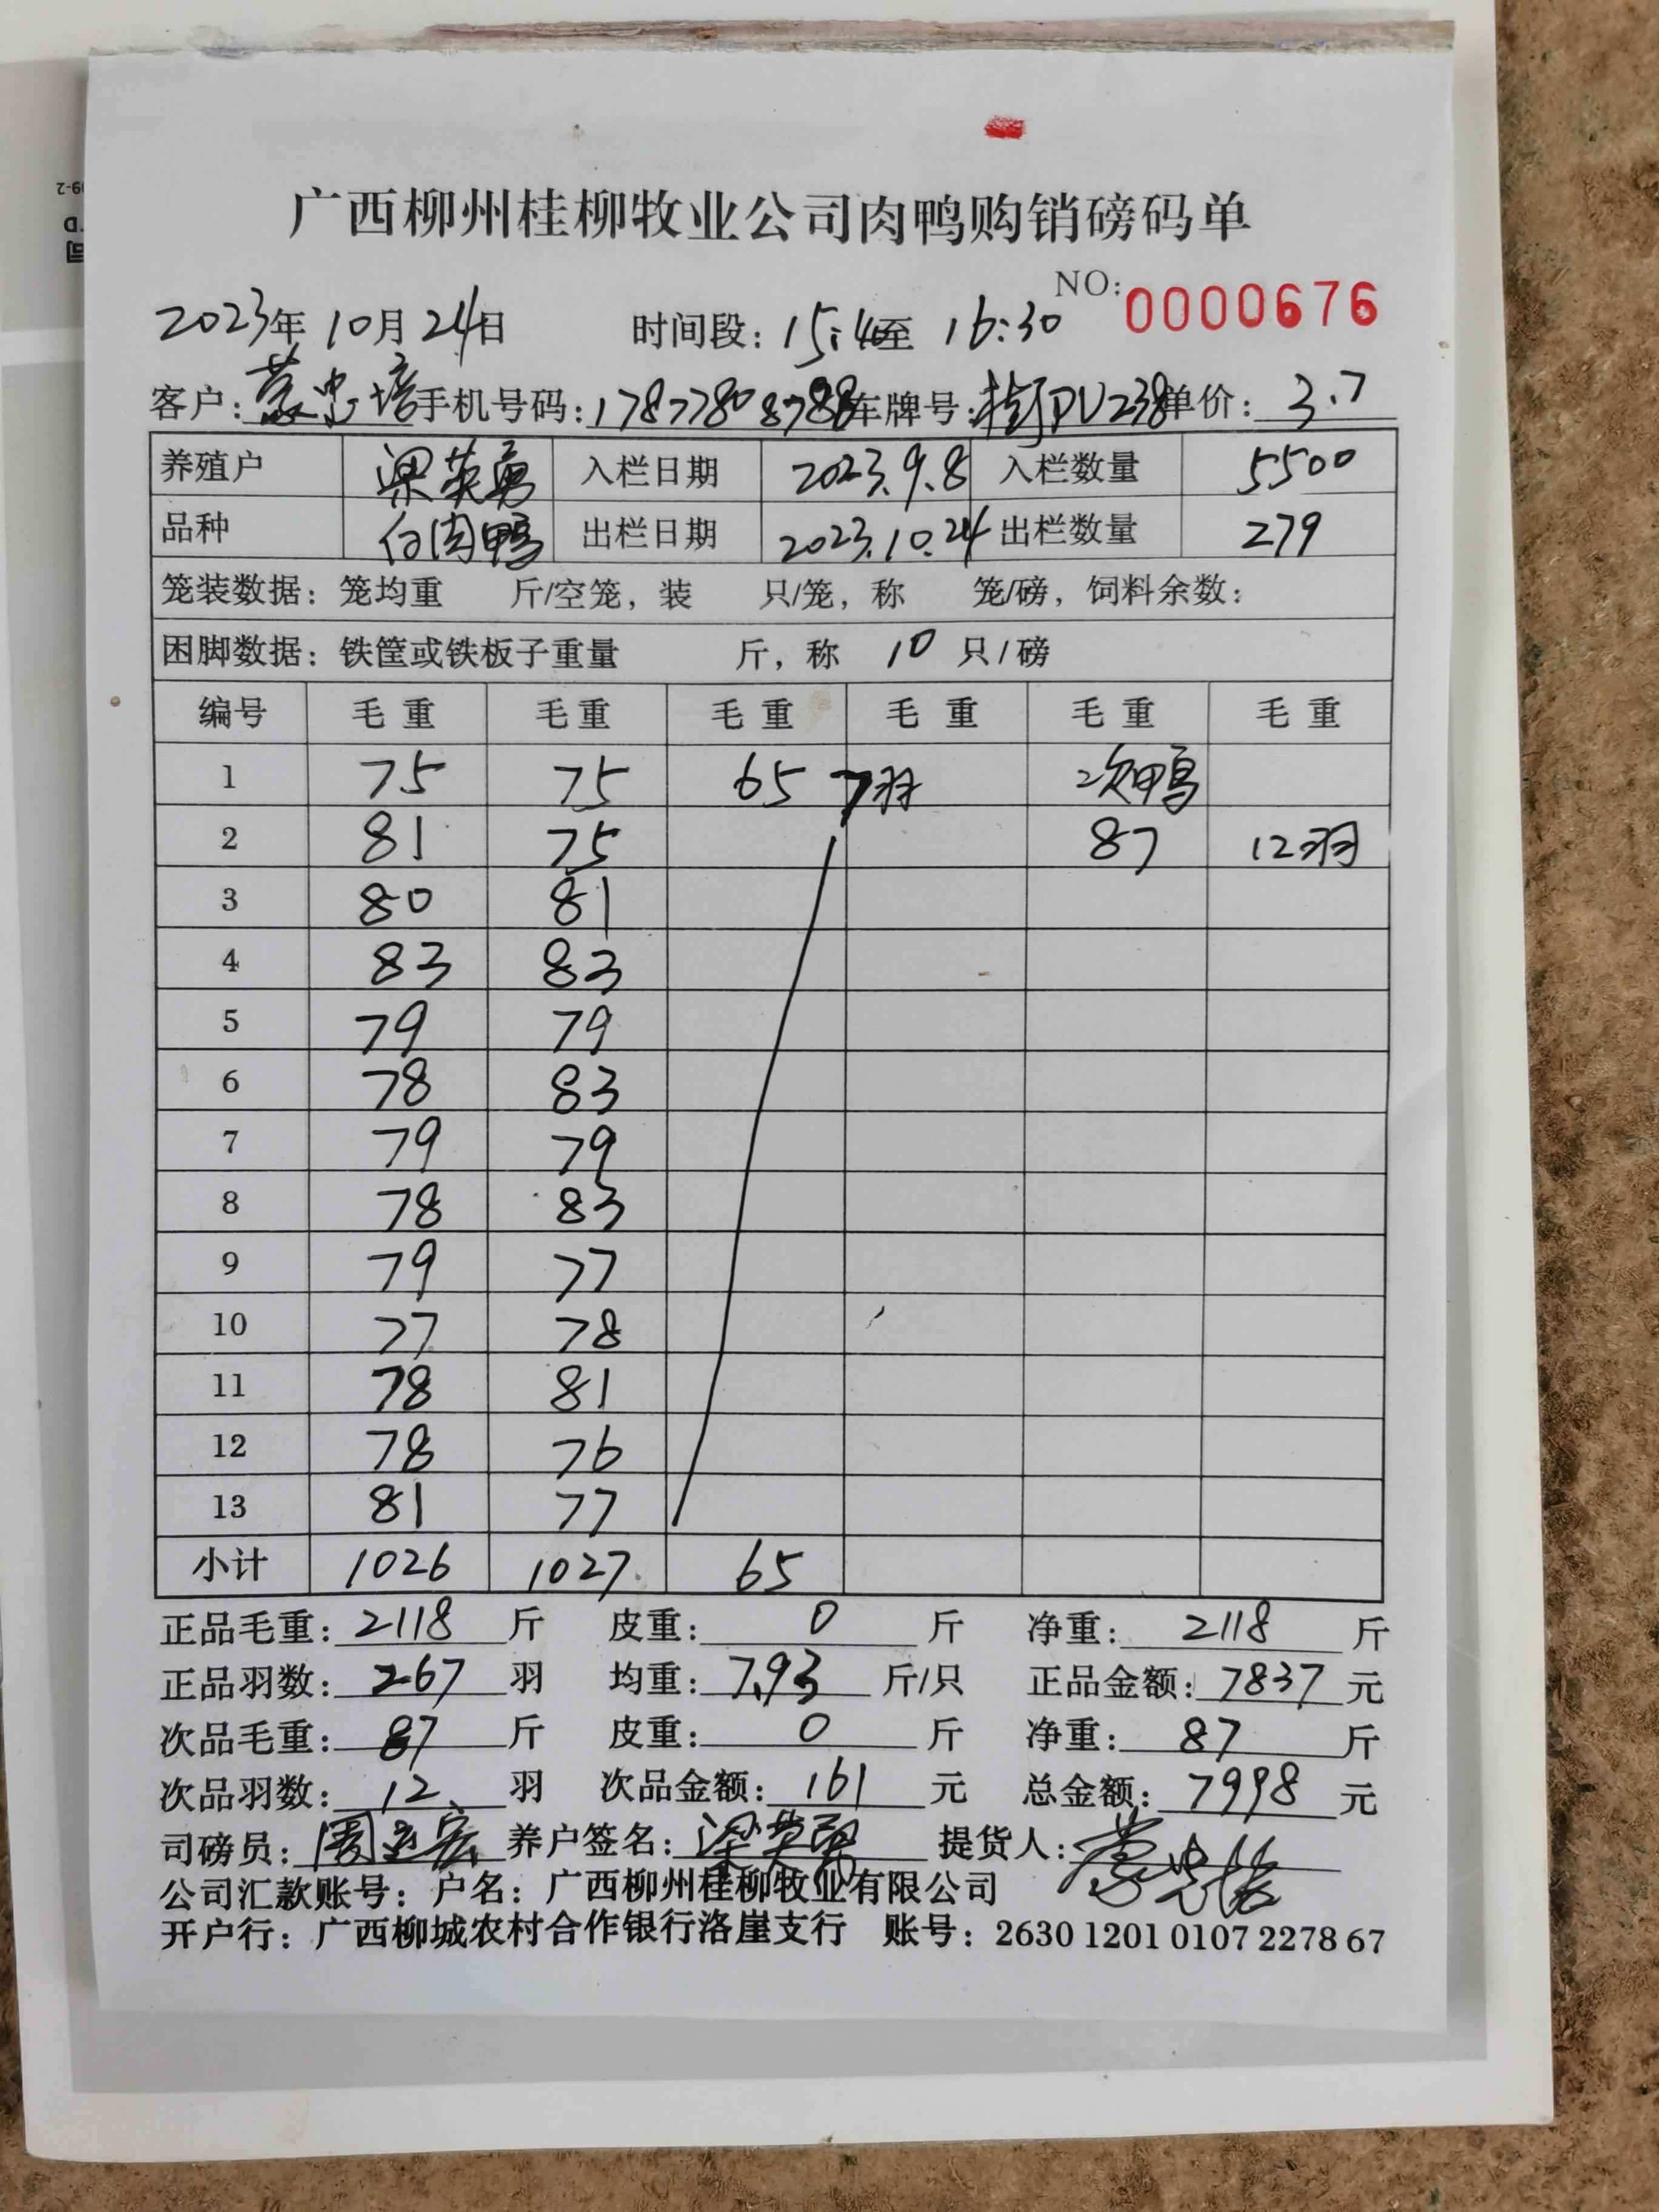 广西柳州桂柳牧业公司肉鸭购销磅码单
NO: 0000676
2023年 10月 24日 时间段: 15:4 至 16:30
客户: 蒙忠培 手机号码: 17877808788 车牌号: 桂 单价: 3.7
养殖户 梁英勇 入栏日期 2023.9.8 入栏数量 5500
品种 白肉鸭 出栏日期 2023.10.24 出栏数量 279
笼装数据: 笼均重 斤/空笼, 装 只/笼, 称 笼/磅, 饲料余数:
困脚数据: 铁筐或铁板子重量 斤, 称 10 只/磅
编号 毛重 毛重 毛重 毛重 毛重 毛重
1 75 75 65 7羽 次鸭
2 81 75 87 12羽
3 80 81
4 83 83
5 79 79
6 78 83
7 79 79
8 78 83
9 79 77
10 77 78
11 78 81
12 78 76
13 81 77
小计 1026 1027 65
正品毛重: 2118 斤 皮重: 0 斤 净重: 2118 斤
正品羽数: 267 羽 均重: 7.93 斤/只 正品金额: 7837 元
次品毛重: 87 斤 皮重: 0 斤 净重: 87 斤
次品羽数: 12 羽 次品金额: 161 元 总金额: 7998 元
司磅员: 养户签名: 梁英勇 提货人: 蒙忠培
公司汇款账号: 户名: 广西柳州桂柳牧业有限公司
开户行: 广西柳城农村合作银行洛崖支行 账号: 2630 1201 0107 2278 67